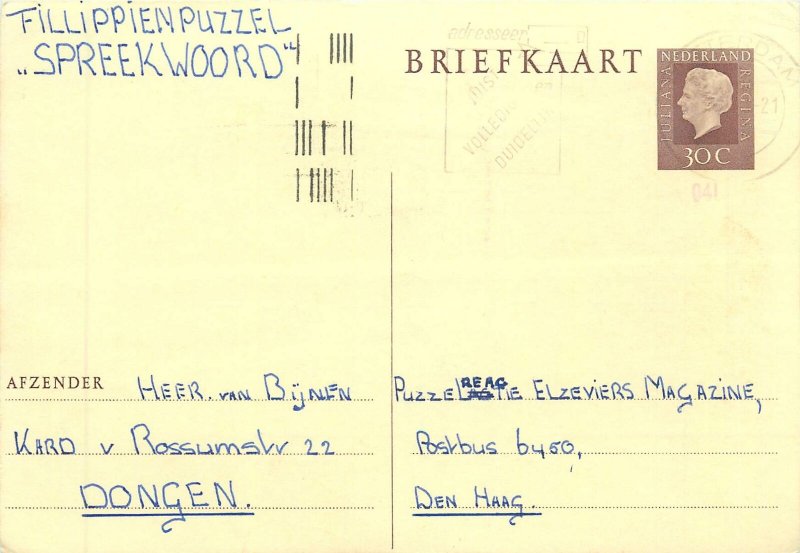 FILLIPPIENPUZZEL
„SPREEKWOORD"
adresseer
VOLLEDIG
DUIDELIJK
BRIEFKAART
NEDERLAND
JULIANA
REGINA
30 C
21
041
AFZENDER HEER. VAN BIJNEN
KARD v Rossumstr 22
DONGEN.
PUZZELREACTIE ELZEVIERS MAGAZINE,
Postbus 6450,
DEN HAAG.